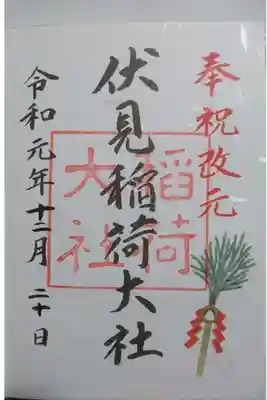 奉祝改元
伏見稲荷大社
稲荷大社
令和元年十二月二十日